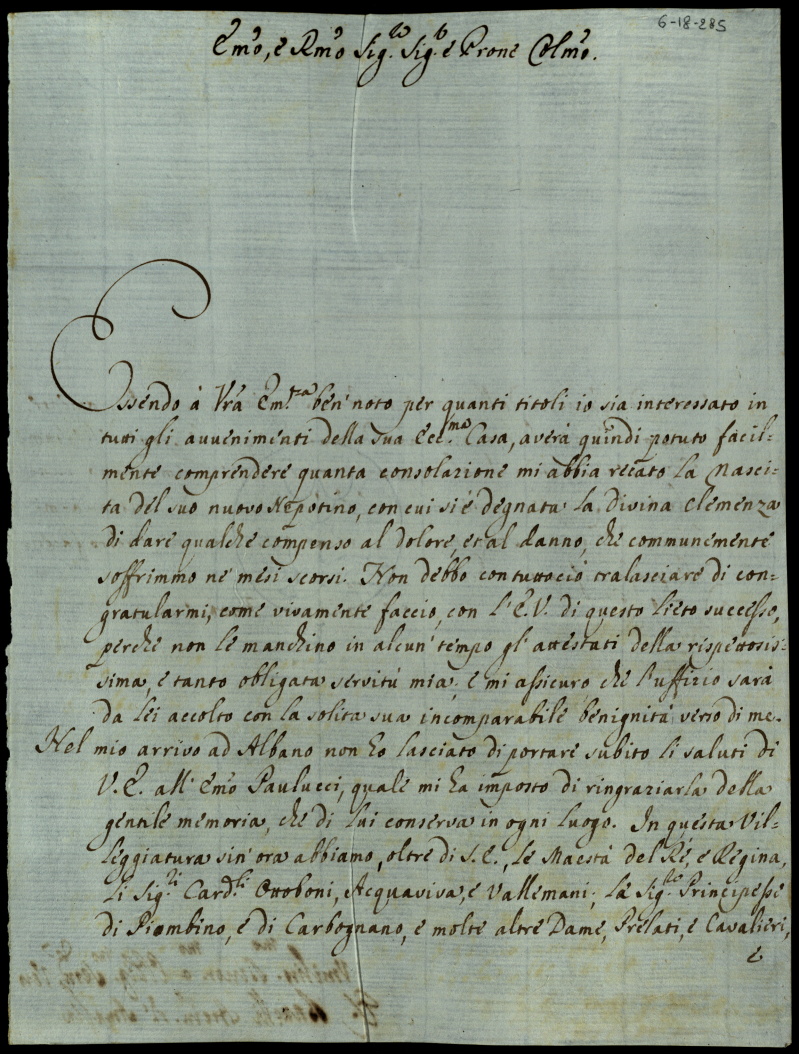 6-18-285
Em̃o, e Rm̃o Sig.re Sig.r e Prone Colm̃o.
Essendo à Vrã Em.za ben' noto per quanti titoli io sia interessato in
tutti gli avvenimenti della sua Ecc.ma Casa, averà quindi potuto facil=
mente comprendere quanta consolazione mi abbia recato la nasci=
ta del suo nuovo Nepotino, con cui si è degnata la divina clemenza
di dare qualche compenso al dolore, et al danno, che communemente
soffrimmo ne' mesi scorsi. Non debbo con tuttociò tralasciare di con=
gratularmi, come vivamente faccio, con l'E.V. di questo lieto successo,
perche non le manchino in alcun' tempo gl' attestati della rispettosis=
sima, e tanto obligata servitù mia, e mi assicuro che l'uffizio sarà
da lei accolto con la solita sua incomparabile benignità verso di me.
Nel mio arrivo ad Albano non ho lasciato di portare subito li saluti di
V.E. all' Em̃o Paulucci, quale mi ha imposto di ringraziarla della
gentile memoria, che di lui conserva in ogni luogo. In questa Vil=
leggiatura sin' ora abbiamo, oltre di S.E., le Maestà del Rè, e Regina,
li Sig.ri Card.li Ottoboni, Acquaviva, e Vallemani; le Sig.re Principesse
di Piombino, e di Carbognano, e molte altre Dame, Prelati, e Cavalieri,
e